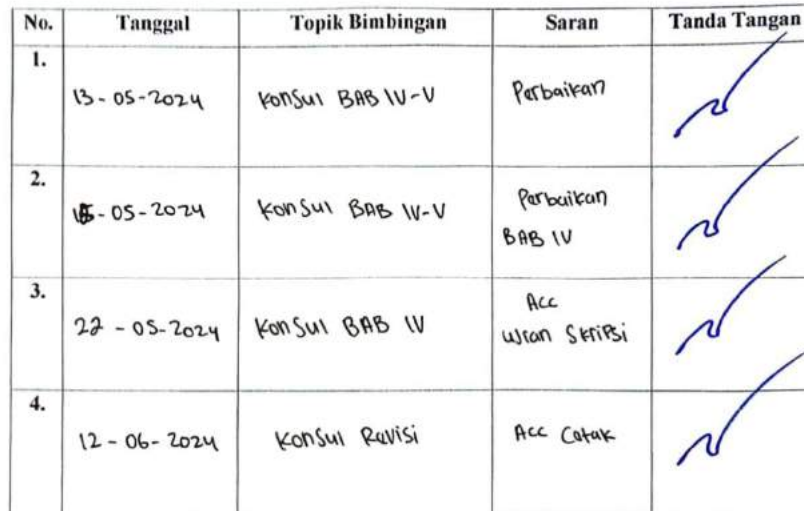 No. Tanggal Topik Bimbingan Saran Tanda Tangan
1.
13-05-2024 Konsul BAB IV-V Perbaikan
2.
-05-2024 Konsul BAB IV-V Perbaikan
BAB IV
3.
22-05-2024 Konsul BAB IV Acc
Ujian Skripsi
4.
12-06-2024 Konsul Revisi Acc Cetak